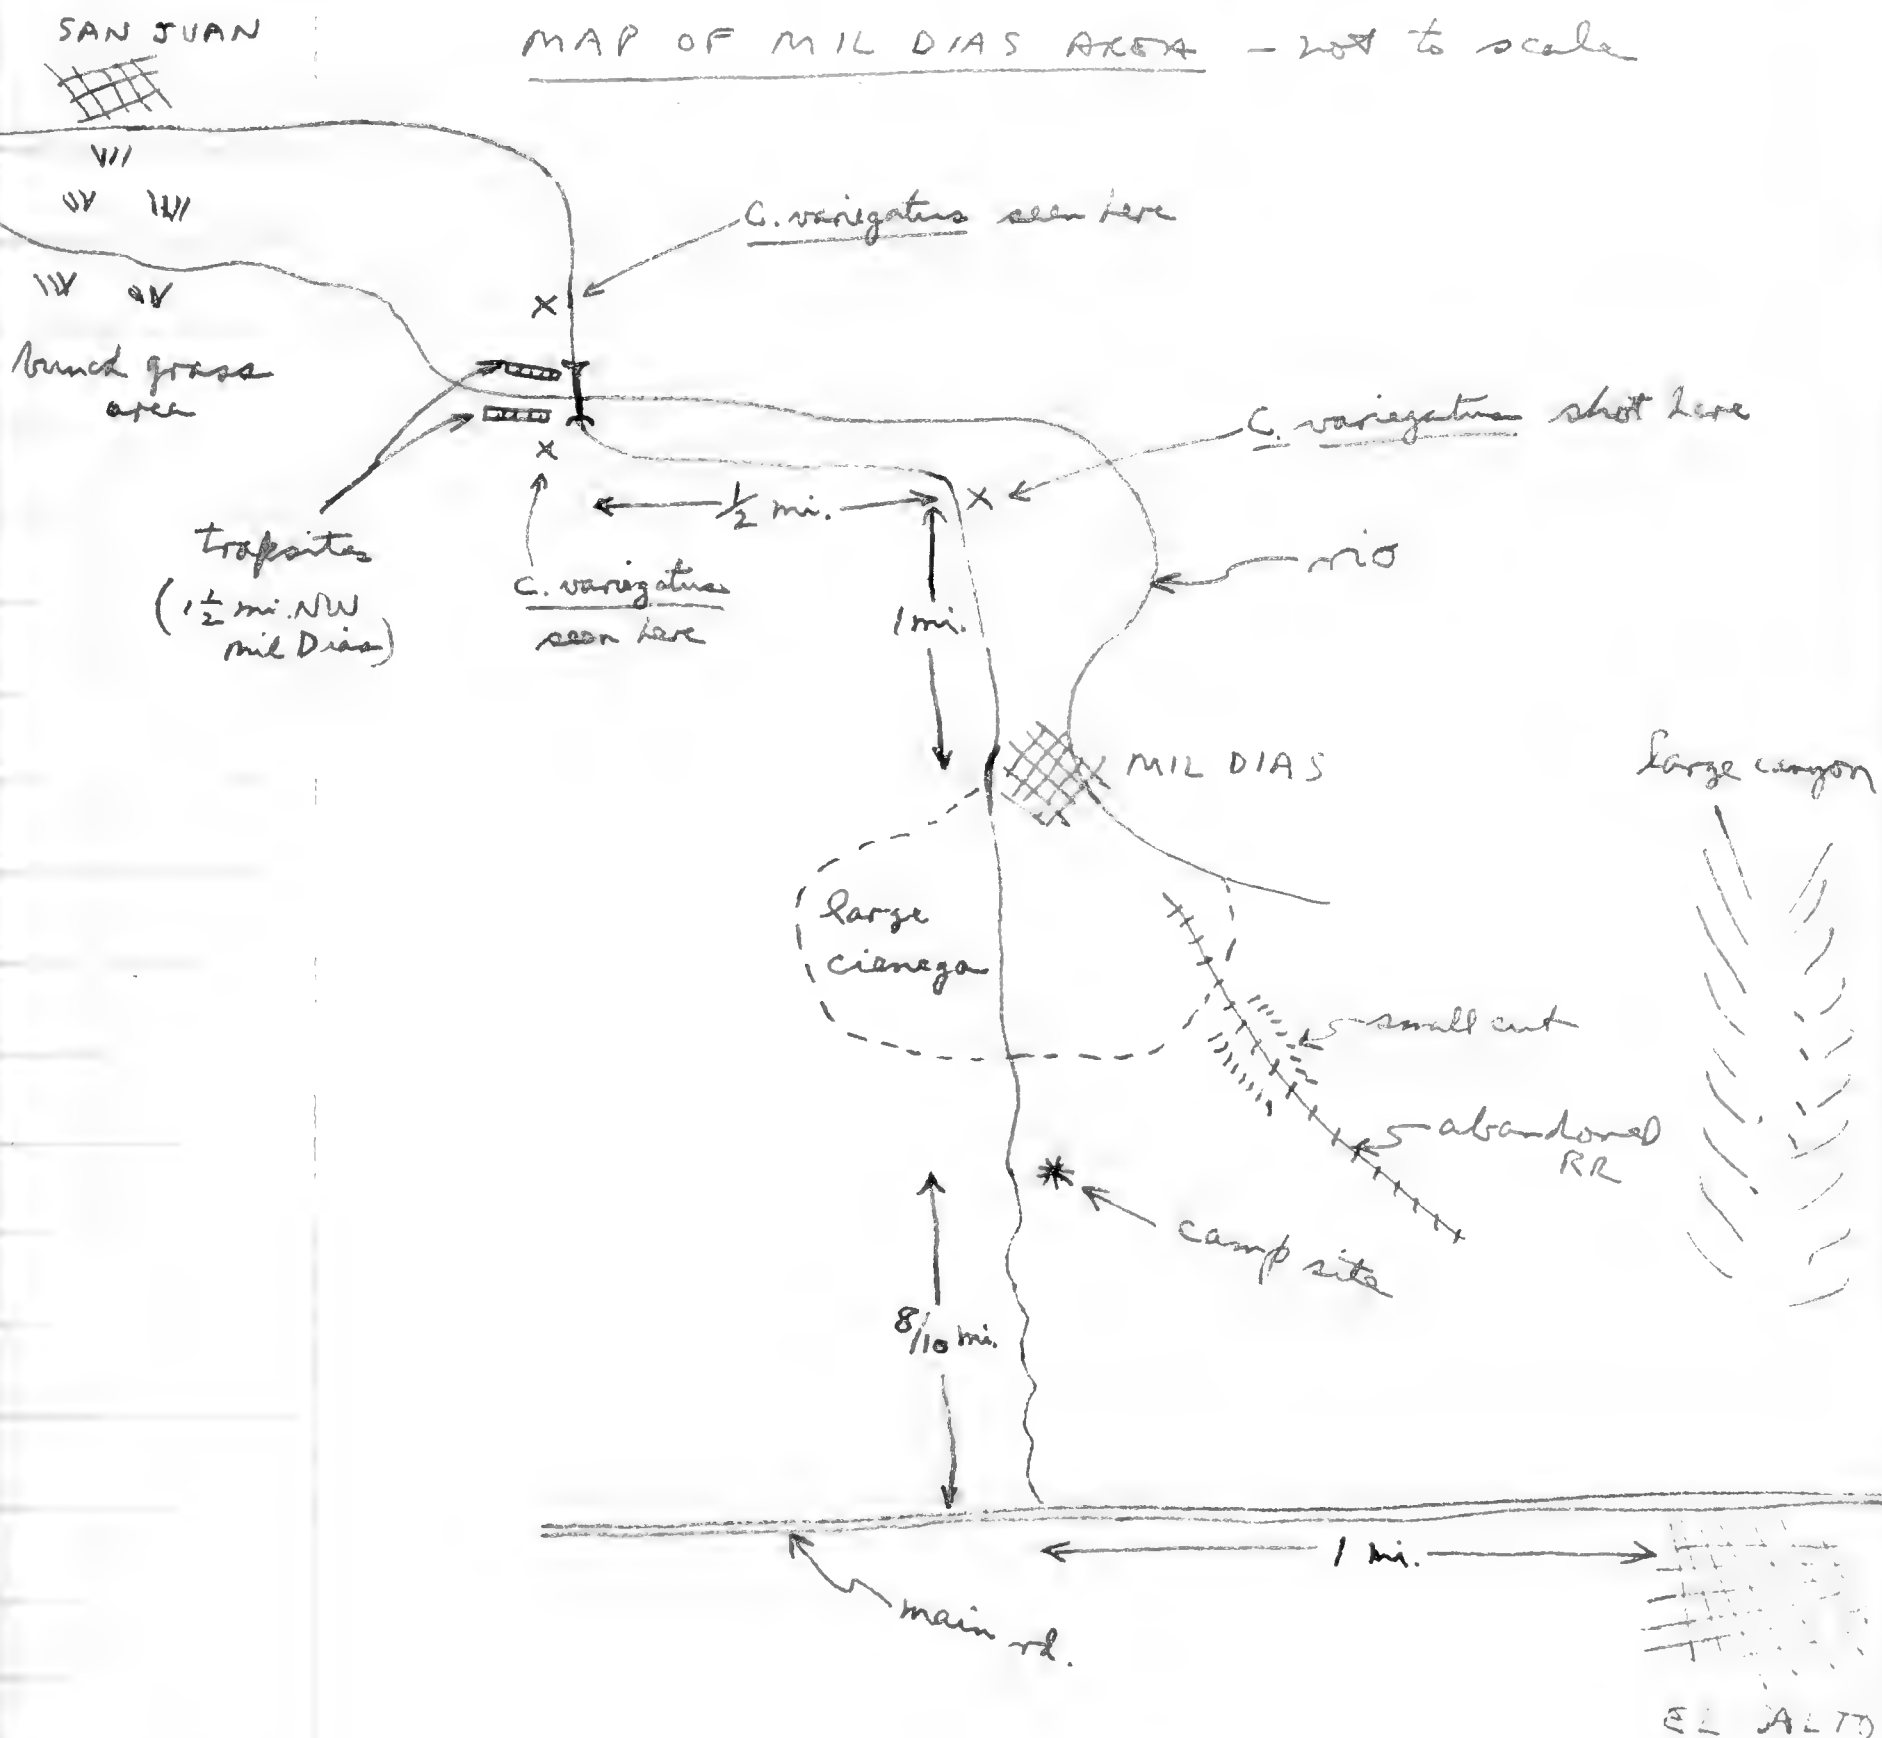 SAN JUAN
MAP OF MIL DIAS AREA - not to scale
C. variegatus seen here
bunch grass
area
C. variegatus shot here
1/2 mi.
trapsites
(1 1/2 mi. NW
Mil Dias)
C. variegatus
seen here
rio
1 mi.
MIL DIAS
large canyon
large
cienega
small cut
abandoned
RR
camp site
8/10 mi.
1 mi.
main rd.
EL ALTO